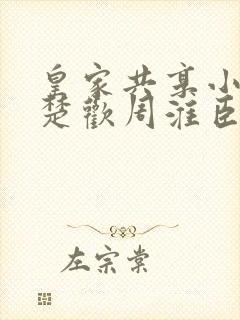 皇家共享小
楚歡周淮臣
左宗棠